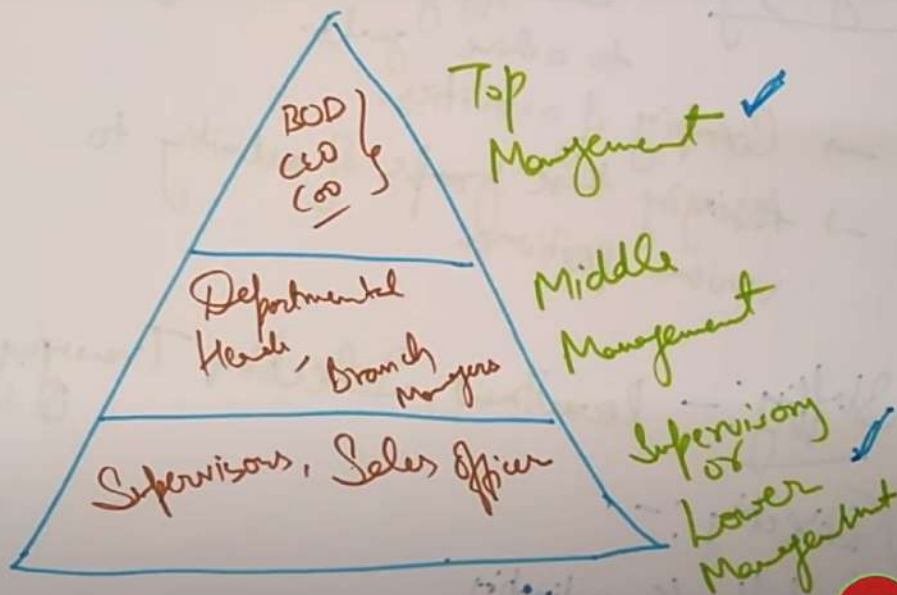 BOD
CEO
COO
Top
Management
Departmental
Heads, Branch
Managers
Middle
Management
Supervisors, Sales Officer
Supervisory
or
Lower
Management